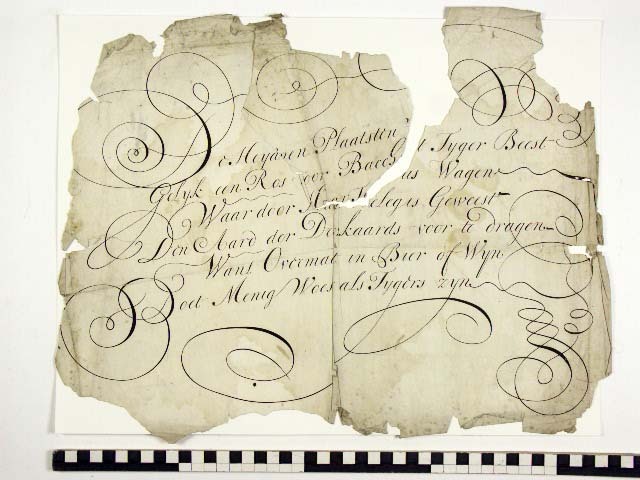 De Heydenen Plaatsten t Tyger Beest
Gelyk een Ros voor Bacch us Wagen
Waar door leg is Geweest
Den Aard der Dronkaards voor te dragen
Want Overmat in Bier of Wyn
Doet Menig Woes als Tygers zyn